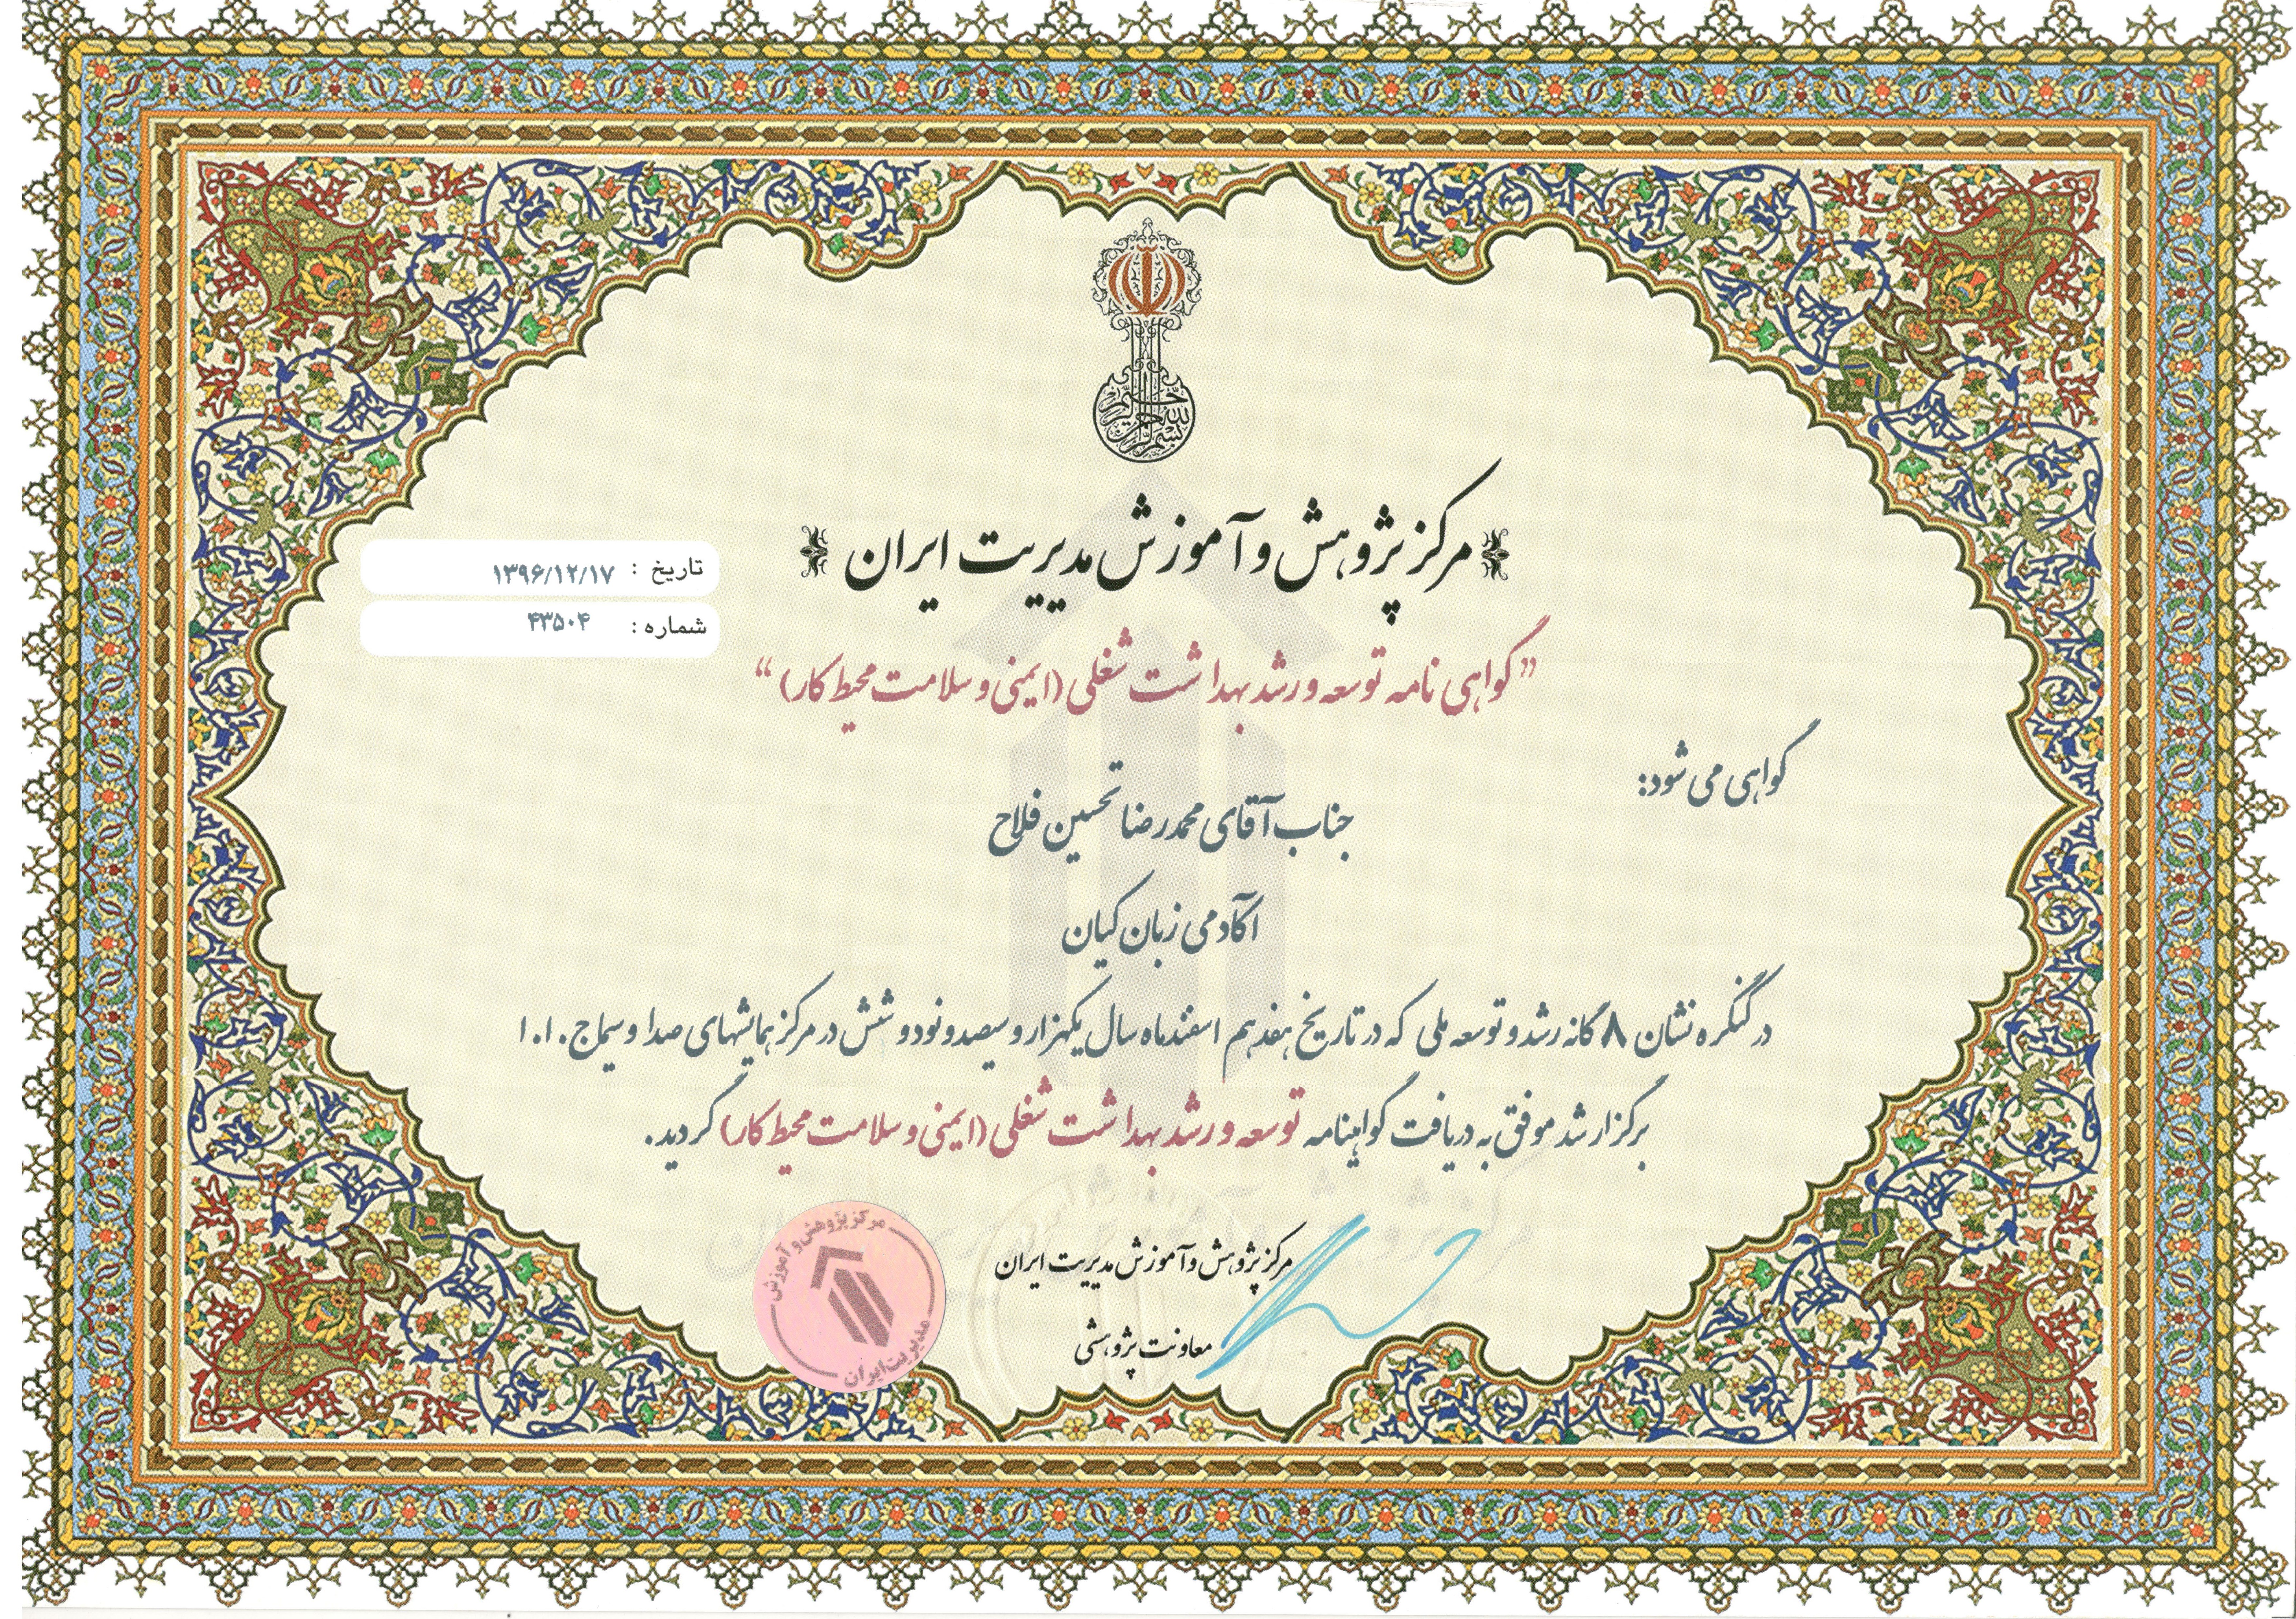 بسم الله الرحمن الرحیم
مرکز پژوهش و آموزش مدیریت ایران
تاریخ : ۱۳۹۶/۱۲/۱۷
شماره : ۴۳۵۰۴
”گواهی نامه توسعه و رشد بهداشت شغلی (ایمنی و سلامت محیط کار)“
گواهی می شود:
جناب آقای محمدرضا تحسین فلاح
آکادمی زبان کیان
در کنگره نشان ۸ گانه رشد و توسعه ملی که در تاریخ هفدهم اسفندماه سال یکهزار و سیصد و نود و شش در مرکز همایشهای صدا و سیما ج.ا.ا.
برگزار شد موفق به دریافت گواهینامه توسعه و رشد بهداشت شغلی (ایمنی و سلامت محیط کار) گردید.
مرکز پژوهش و آموزش مدیریت ایران
مرکز پژوهش و آموزش مدیریت ایران
معاونت پژوهشی
مرکز پژوهش و آموزش
مدیریت ایران